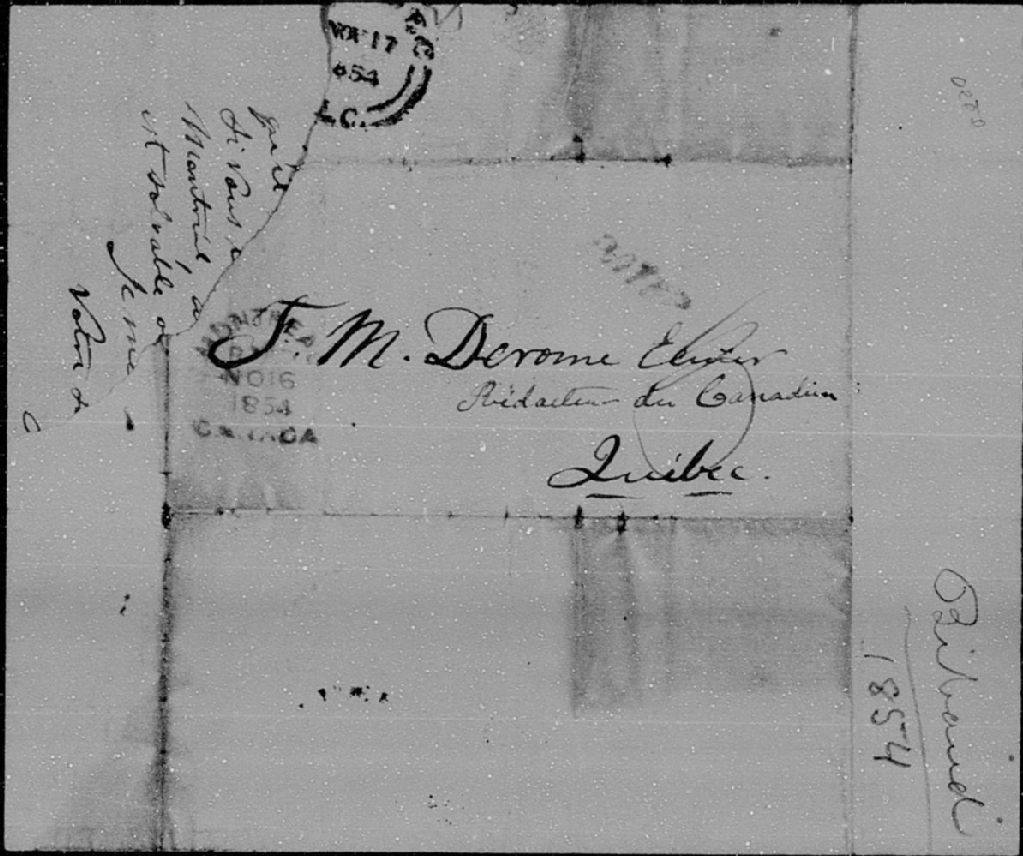 NOV 17
1854
L.C.
qu'il
Si vous
Montréal
et solvable
Je me
Votre
MONTREAL
NO 16
1854
CANADA
F. M. Derome Ecuier
Rédacteur du Canadien
Québec.
Bibaud
1854